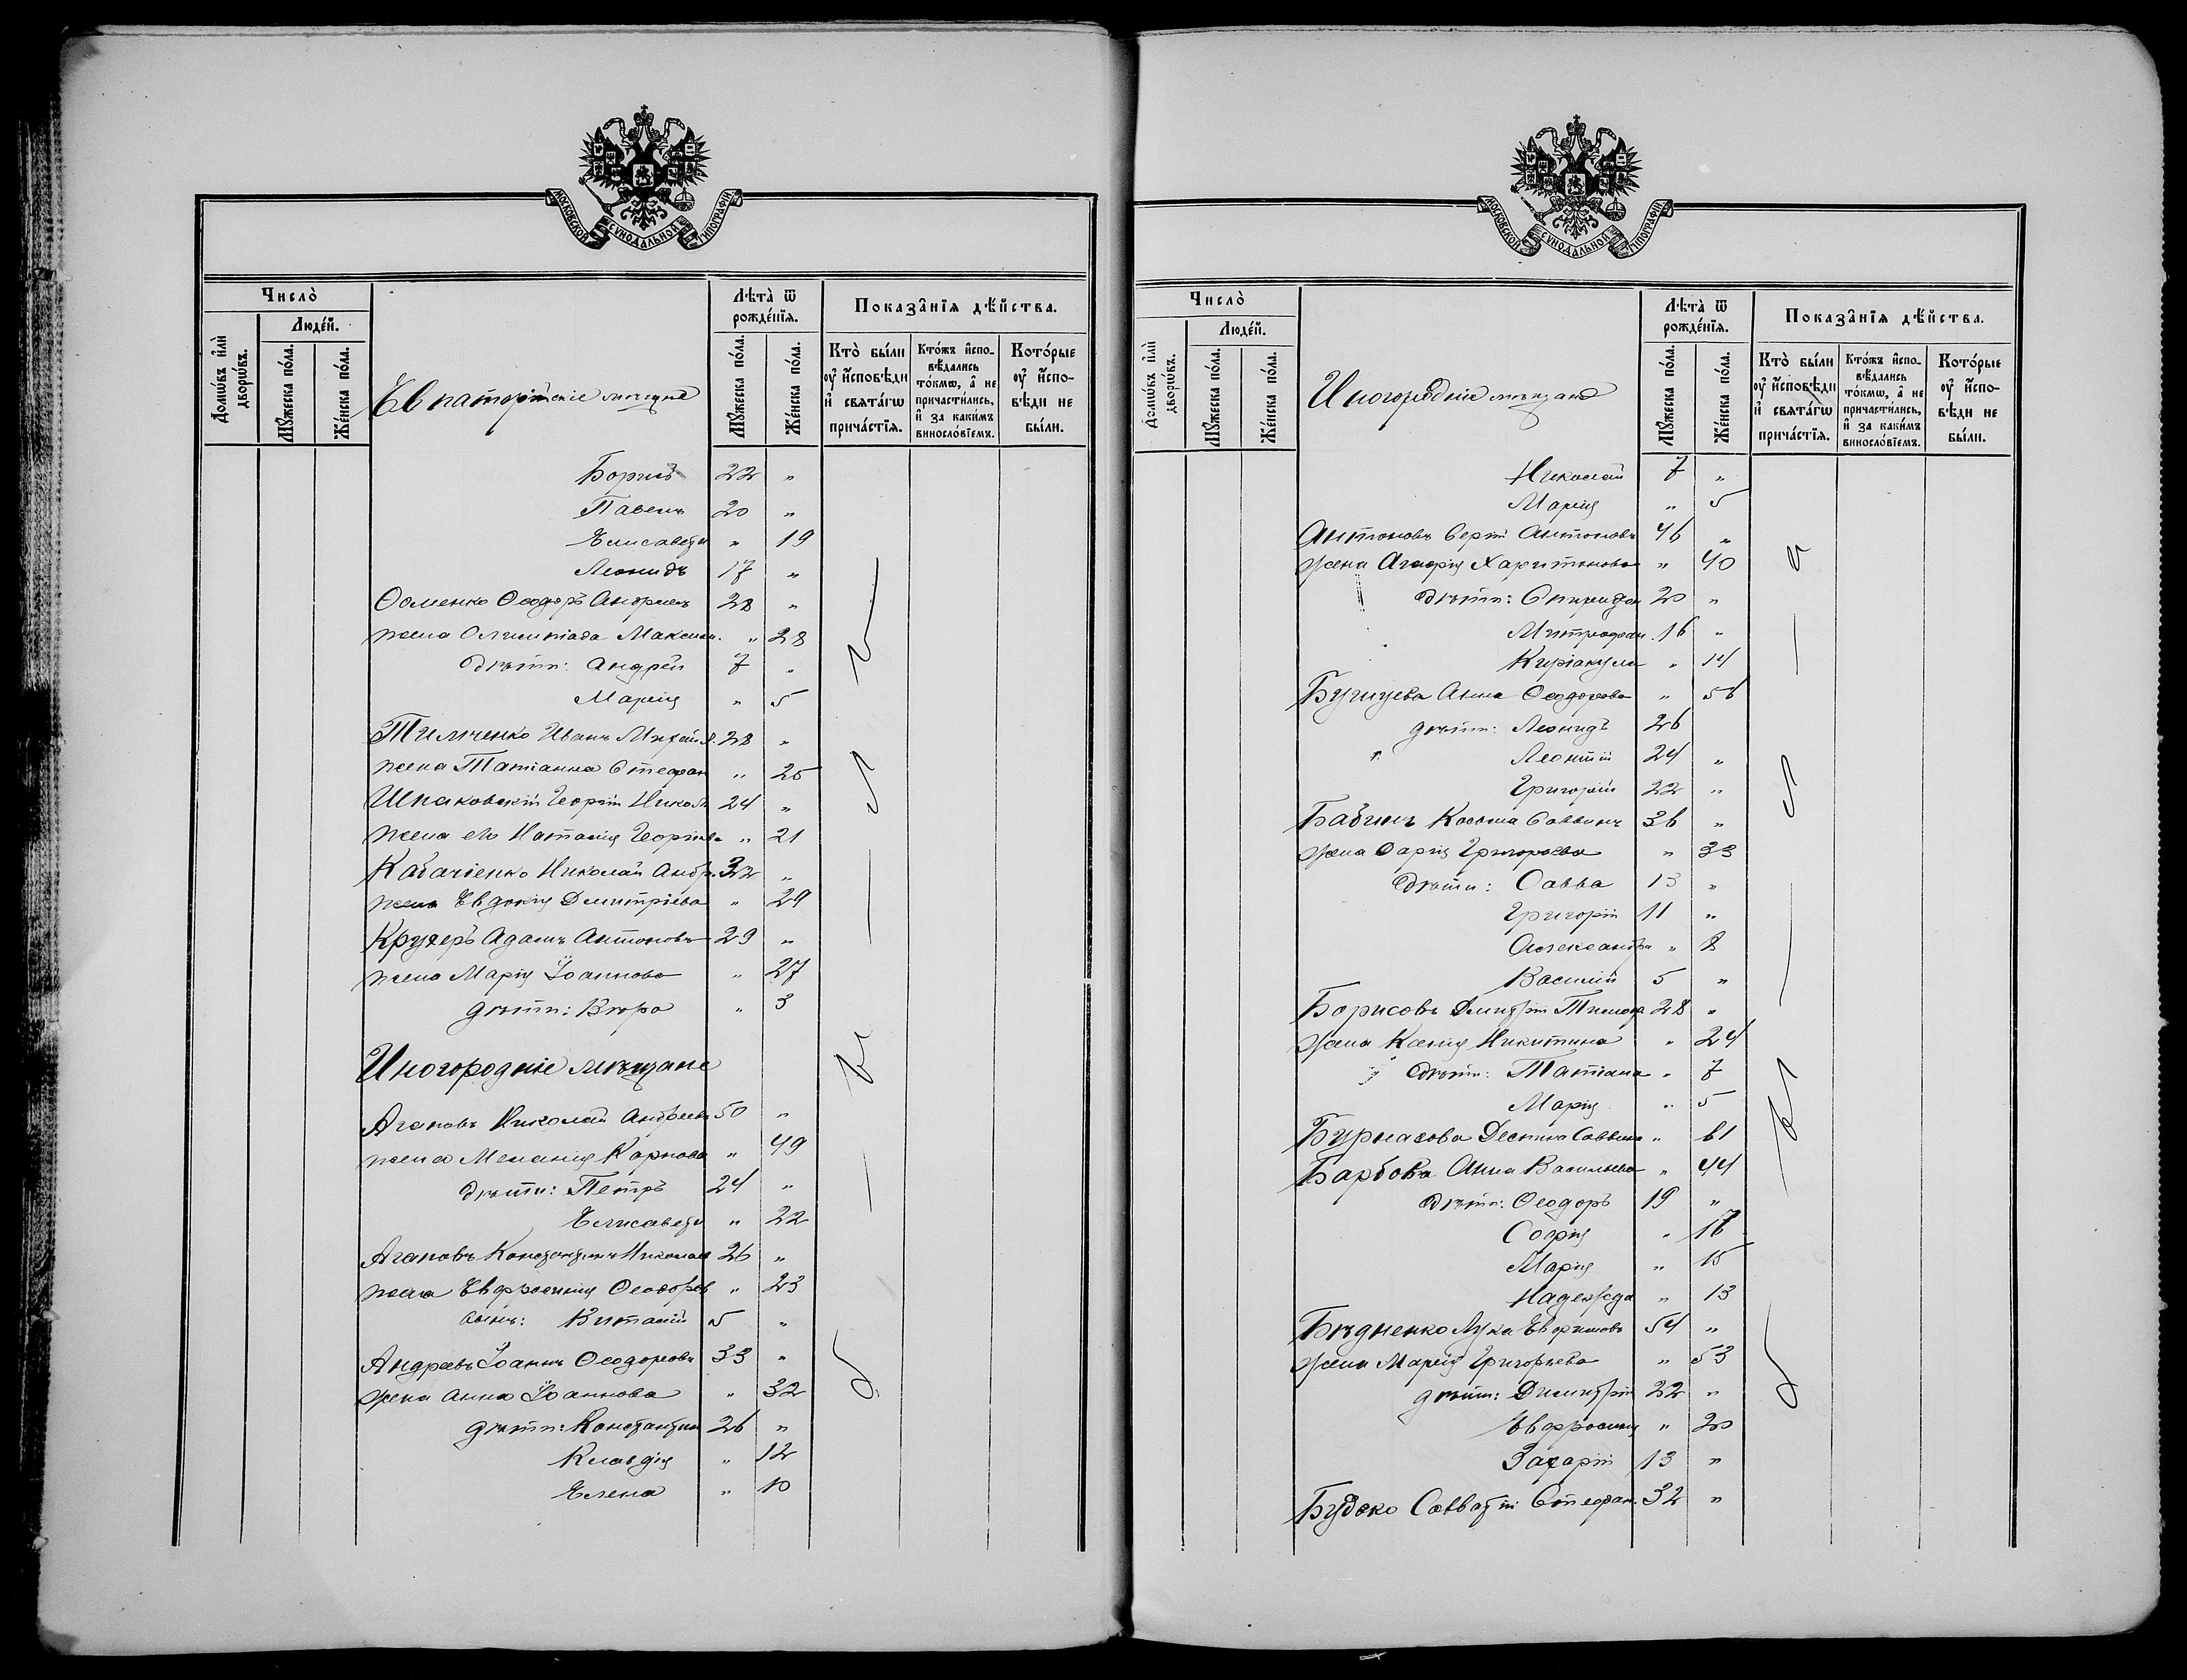 МОСКОВСКОЙ СѴНОДАЛЬНОЙ ТИПОГРАФІИ.
Число̀
Людéй.
Домѡ́въ и҆лѝ дворѡ́въ.
Мꙋ́жеска по́ла.
Же́нска по́ла.
Евпаторійскіе мѣщане
Лѣта̀ ѿ рожде́нїѧ.
Мꙋ́жеска по́ла.
Же́нска по́ла.
Показа̂нїѧ дѣ́йства.
Кто̀ бы́ли ᲂу҆ и҆сповѣди и҆ свѧта́гѡ прича́стїѧ.
Кто́жъ и҆сповѣ́дались то́кмѡ, а҆ не причасти́лись, и҆ за каки́мъ винослⷪ҇о́вїемъ.
Кото́рые ᲂу҆ и҆сповѣди не бы́ли.
Борисъ 22 "
Павелъ 20 "
Елисавета " 19
Леонидъ 17 "
Ѳоменко Ѳеодоръ Андреевъ 28 "
жена Олимпіада Максим. " 28
дѣти: Андрей 7 "
Марія " 5
Тимченко Иванъ Михайл. 28 "
жена Татіанна Стефан " 25
Шпаковскій Георгій Никол 24 "
жена его Наталія Георгіев " 21
Кабаченко Николай Андр. 32 "
жена Евдокія Димитріева " 29
Крухеръ Адамъ Антоновъ 29 "
жена Марія Іоаннова " 27
дѣти: Вѣра " 3
Иногородніе мѣщане
Агаповъ Николай Андреевъ 50 "
жена Меланія Карпова " 49
дѣти: Петръ 24 "
Елисавета " 22
Агаповъ Константинъ Николаев 26 "
жена Евфросинія Ѳеодоров " 23
сынъ: Виталій 5 "
Андреевъ Іоаннъ Ѳеодоровъ 33 "
жена Анна Іоаннова " 32
дѣти: Константин 26 "
Клавдія " 12
Елена " 10
МОСКОВСКОЙ СѴНОДАЛЬНОЙ ТИПОГРАФІИ.
Число̀
Людéй.
Домѡ́въ и҆лѝ дворѡ́въ.
Мꙋ́жеска по́ла.
Же́нска по́ла.
Иногородніе мѣщане
Лѣта̀ ѿ рожде́нїѧ.
Мꙋ́жеска по́ла.
Же́нска по́ла.
Показа̂нїѧ дѣ́йства.
Кто̀ бы́ли ᲂу҆ и҆сповѣди и҆ свѧта́гѡ прича́стїѧ.
Кто́жъ и҆сповѣ́дались то́кмѡ, а҆ не причасти́лись, и҆ за каки́мъ винослⷪ҇о́вїемъ.
Кото́рые ᲂу҆ и҆сповѣди не бы́ли.
Николай 7 "
Марія " 5
Антоновъ Сергій Антоновъ 46 "
жена Агафія Харитонова " 40
дѣти: Спиридон 20 "
Митрофан. 16 "
" 14
Анна Ѳеодорова " 56
дѣти: Леонидъ 26
Леонтій 24 "
Григорій 22 "
Бабинъ Косьма Саввинъ 36 "
жена Дарія Григорьева " 33
дѣти: Савва 13 "
Григорій 11 "
Александра " 8
Василій 5 "
Борисовъ Димитрій Тимоф 28 "
жена Ксенія Никитина " 24
дѣти: Татіана " 7
Марія " 5
Бурнасова Деспина Саввина " 61
Барбова Анна Васильева " 44
дѣти: Ѳеодоръ 19 "
Софія " 17
Марія " 15
Надежда " 13
Бѣдненко Лука Евфимовъ 54 "
жена Марія Григорьева " 53
дѣти: Димитрій 22 "
Евфросинія " 20
Захарій 13 "
Будько Савватій Стефан. 32 "